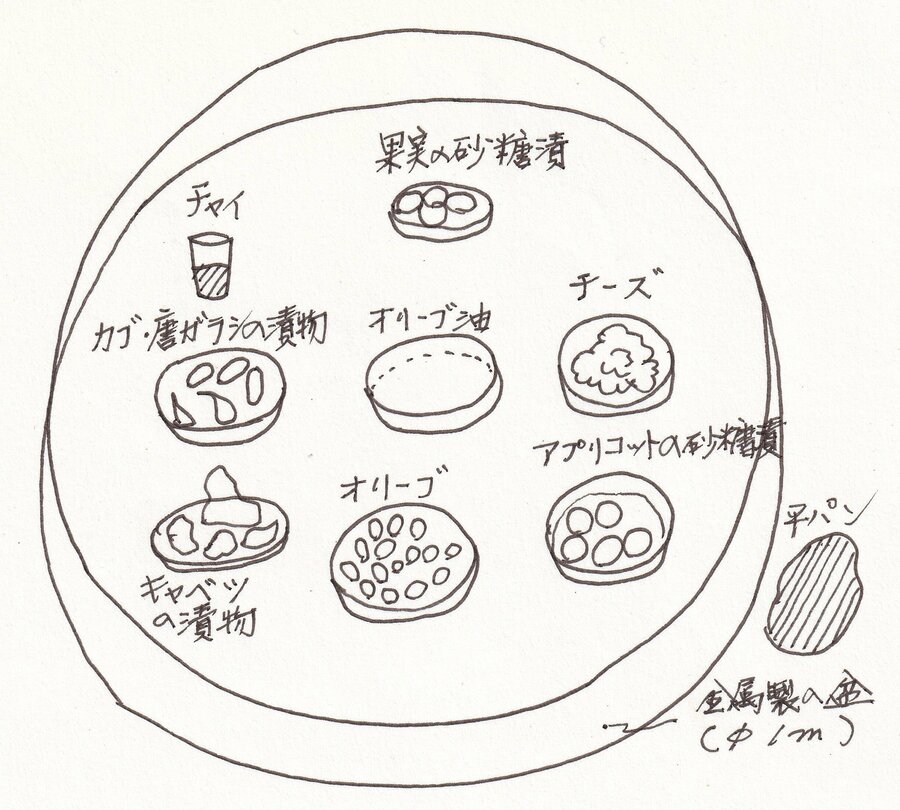 果実の砂糖漬
チャイ
チーズ
カゴ・唐ガラシの漬物
オリーブ油
アプリコットの砂糖漬
オリーブ
平パン
キャベツ
の漬物
金属製の盆
(φ1m)